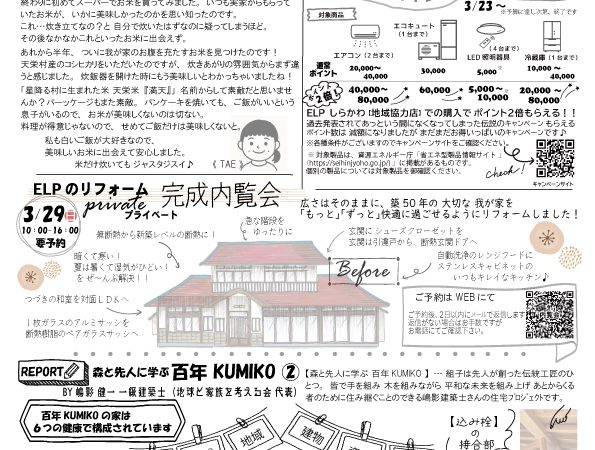 終わりに初めてスーパーでお米を買ってみました。いつも実家からもらって
いたお米が、いかに美味しかったのかを思い知ったのです。
これ…炊き立てなの？と 自分で炊いたはずなのに疑ってしまうほど。
その後なかなかこれといったお米に出会えず。
あれから半年、ついに我が家のお腹を充たすお米を見つけたのです！
天栄村産のコシヒカリをいただいたのですが、炊きあがりの雰囲気からまず違
うと感じました。炊飯器を開けた時にもう美味しいとわかっちゃいましたね！
「星降る村に生まれた米 天栄米『満天』」名前からして素敵だと思いませ
んか？パーッケージもまた素敵。パンケーキを焼いても、ご飯がいいという
息子がいるので、お米が美味しくないのは切ない。
料理が得意じゃないので、せめてご飯だけは美味しくないと。
私も白いご飯が大好きなので、
美味しいお米に出会えて安心しました。
米だけ炊いてもジャスタジスイ♪
《 TAE 》
3/23～
※予算に達し次第、終了です
対象商品
エアコン（2台まで）
エコキュート
（1台まで）
（4台まで）
LED 照明器具
冷蔵庫（1台まで）
通常
ポイント
20,000～
40,000
30,000
5,000
10,000～
40,000
ポイント
2倍！
40,000～
80,000
60,000
5,000
20,000～
80,000
ELP しらかわ（地域協力店）での購入で ポイント2倍もらえる！！
過去発表されてあっという間になくなってしまった伝説のキャンペーン もらえる
ポイント数は 減額になりましたが まだまだお得いっぱいのキャンペーンです♪
※各種条件がございますのでキャンペーンサイトをご確認ください
※ 対象製品は、資源エネルギー庁「省エネ型製品情報サイト」
（https://seihinjyoho.go.jp/）に掲載があるものです。
個別の製品については対象製品を御確認ください。
check!
キャンペーンサイト
ELPのリフォーム
private
プライベート
完成内覧会
3/29
10:00-16:00
要予約
広さはそのままに、築50年の大切な 我が家を
「もっと」「ずっと」快適に過ごせるようにリフォームしました！
無断熱から新築レベルの断熱に！
急な階段を
ゆったりに
玄関に シューズクローゼットを
玄関は引違戸から、断熱玄関ドアへ
暗くて寒い！
夏は暑くて湿気がひどい！
を ぜ～んぶ解決！！
Before
自動洗浄のレンジフードに
ステンレスキャビネットの
いつもキレイなキッチン♪
つづきの和室を対面LDKへ
1枚ガラスのアルミサッシを
断熱樹脂のペアガラスサッシへ
ご予約は WEBにて
ご予約後、2日以内にメールで返信
返信がない場合はお手数ですが
お電話にてご確認下さい。
内覧会
REPORT
森と先人に学ぶ 百年 KUMIKO ②
BY 嶋影 健一 一級建築士（地球と家族を考える会 代表）
【森と先人に学ぶ 百年 KUMIKO 】… 組子は先人が創った伝統工芸のひ
とつ。皆で手を組み 木を組みながら 平和な未来を組み上げ あとからくる
者のために住み継ぐことのできる嶋影建築士さんの住宅プロジェクトです。
百年 KUMIKO の家は
6つの健康で構成されています
地域
建物
【込み栓】
の
接合部